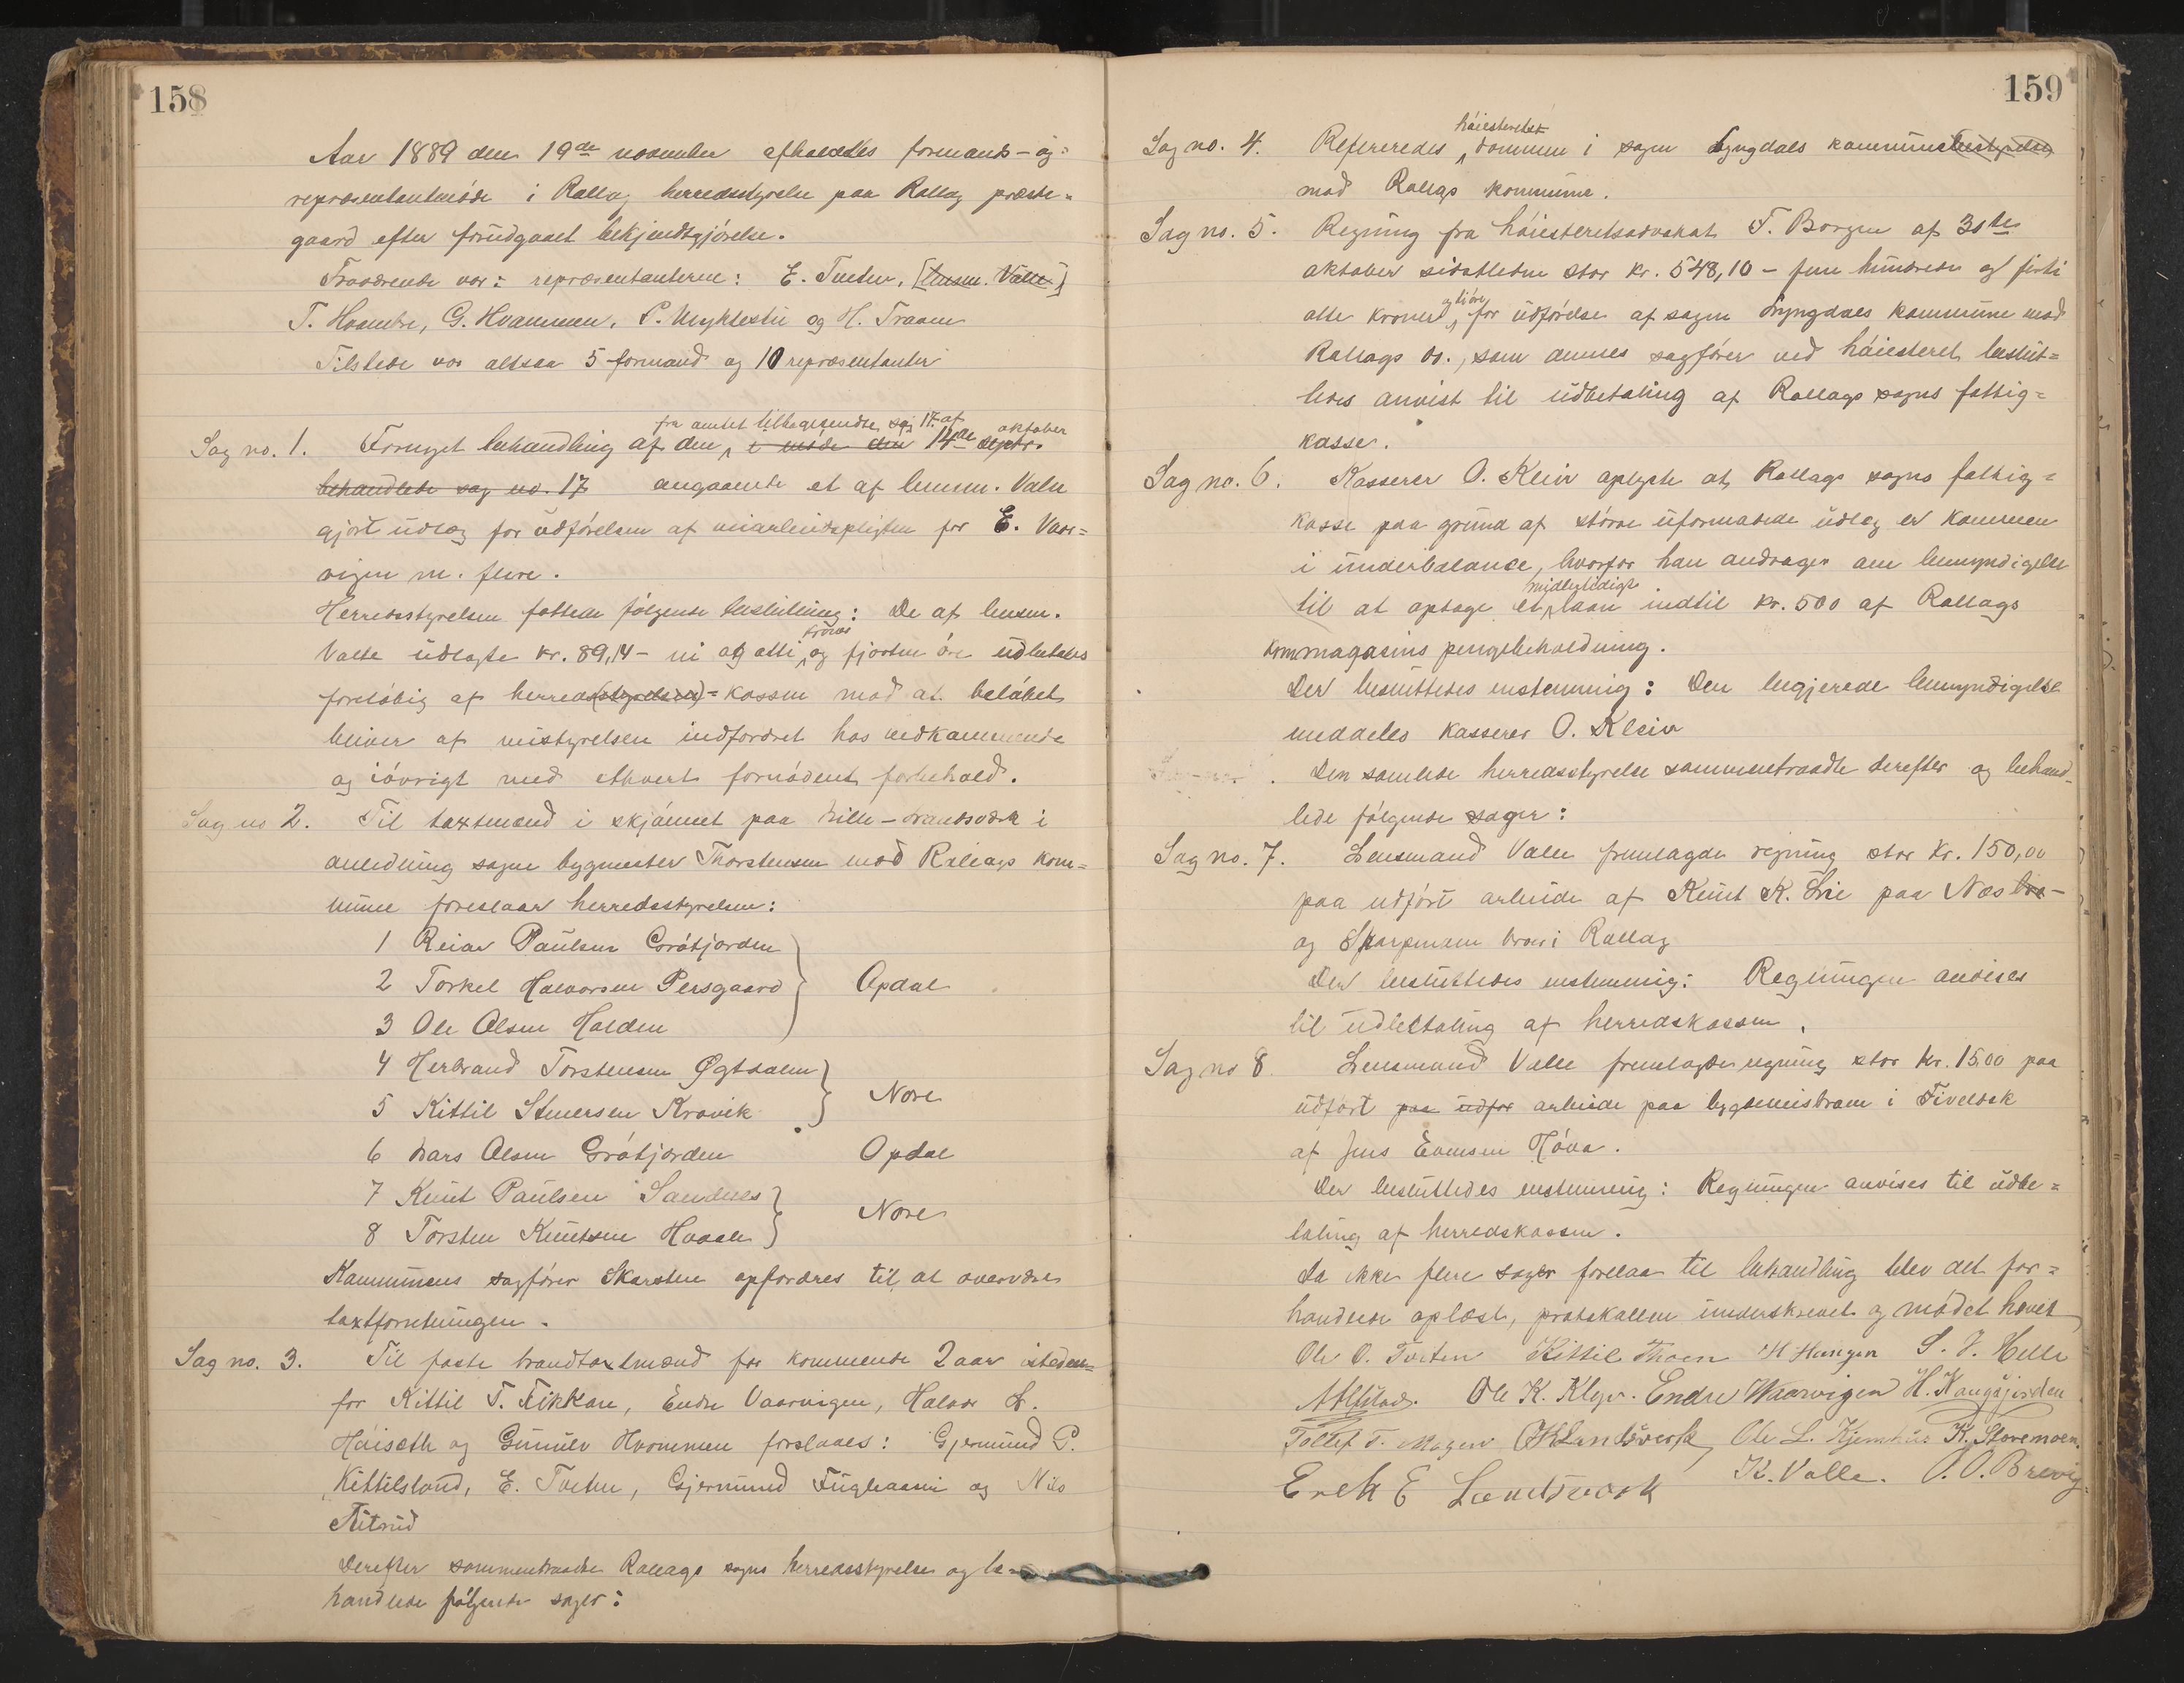 158
Aar 1889 den 19de november afholdtes formands- og
repræsentantmøde i Rollag herredsstyrelse paa Rollag præste-
gaard efter forudgaaet bekjendtgjørelse.
Fraværende var: repræsentanterne: E. Tveten, [lensm. Valle]
T. Hvambe, G. Hvammen, P. og H. Traaen
Tilstede var altsaa 5 formænd og 10 repræsentanter
fra amtet tilbagesendte sag 17 af oktober
Sag no. 1. Fornyet behandling af den i møde den 14de septbr.
behandlede sag no. 17 angaaende et af lensm. Valle
gjort udlæg for udførelsen af veiarbeidspligten for E. Vaar-
vigen m. flere.
Herredsstyrelsen fattede følgende beslutning: De af lensm.
kroner
Valle udlagte kr. 89,14 - ni og otti og fjorten øre udbetales
foreløbig af herreds(styrelsen)-kassen mod at beløbet
bliver af veistyrelsen indfordret hos vedkommende
og iøvrigt med ethvert fornødent forbehold.
Sag no 2. Til taxtmænd i skjønnet paa lille-
anledning sagen bygmester Thorstensen mod Rollags kom-
mune foreslaar herredsstyrelsen:
1 Reiar Paulsen Grøtjorden
2 Torkel Halvorsen Persgaard Opdal
3 Ole Olsen Halden
4 Herbrand Torstensen Øgtdalen
5 Kittil Stenersen Kravik Nore
6 Lars Olsen Grøtjorden Opdal
7 Knut Paulsen Sandnes
8 Torsten Knutsen Nore
Kommunens sagfører Skarsten opfordres til at overvære
taxtforretningen.
Sag no. 3. Til faste brandtaxtmænd for kommende 2 aar isteden-
for Kittil T. Fikkan, Endre Vaarvigen, Halvor L.
Høiseth og Gunulv Hvammen forslaaes: Gjermund P.
Kittilsland, E. Tveten, Gjermund Fuglaasen og Nils
Aitrud
Derefter sammentraadte Rollags sogns herredsstyrelse og be-
handlede følgende sager:
159
høiesterets
Sag no. 4. Refereredes dommen i sagen Lyngdals kommunebestyrelse
mod Rollags kommune.
Sag no. 5. Regning fra høiesteretsadvokat F. Borgen af 30te
oktober sidstleden stor kr. 548,10 - fem hundrede og firti
og tiøre
otte kroner for udførelse af sagen Lyngdals kommune mod
Rollags do., som dennes sagfører ved høiesteret beslut-
tedes anvist til udbetaling af Rollags sogns fattig-
kasse.
Sag no. 6. Kasserer O. Kleiv oplyste at Rollags sogns fattig-
kasse paa grund af større uformodede udlæg er kommen
i underbalance, hvorfor han andrager om bemyndigelse
midlertidigt
til at optage et laan indtil kr. 500 af Rollags
kornmagasins pengebeholdning.
Der besluttedes enstemmig: Den begjærede bemyndigelse
meddeles kasserer O. Kleiv
Den samlede herredsstyrelse sammentraadte derefter og behand-
lede følgende sager:
Sag no. 7. Lensmand Valle fremlagde regning stor kr. 150,00
paa udført arbeide af Knut K. Lie paa Næs bro-
og broer i Rollag
Der besluttedes enstemmig: Regningen anvises
til udbetaling af herredskassen.
Sag no 8. Lensmand Valle fremlagde regning stor kr. 15.00 paa
udført paa udfør arbeide paa bygdeveisbroen i
af Jens Evensen Høva.
Der besluttedes enstemmig: Regningen anvises til udbe-
taling af herredskassen.
Da ikke flere sager forelaa til behandling blev det for-
handlede oplæst, protokollen underskrevet og mødet hævet
Ole O. Tveten Kittil Thoen H Haugen S. J. Helle
Ole K. Klev. Endre Waarvigen H. Kaugsjorden
Tollef T. Mogen OHLandsverk Ole L. K. Storemoen.
Erek E Landsverk K. Valle. O. O. Brevig